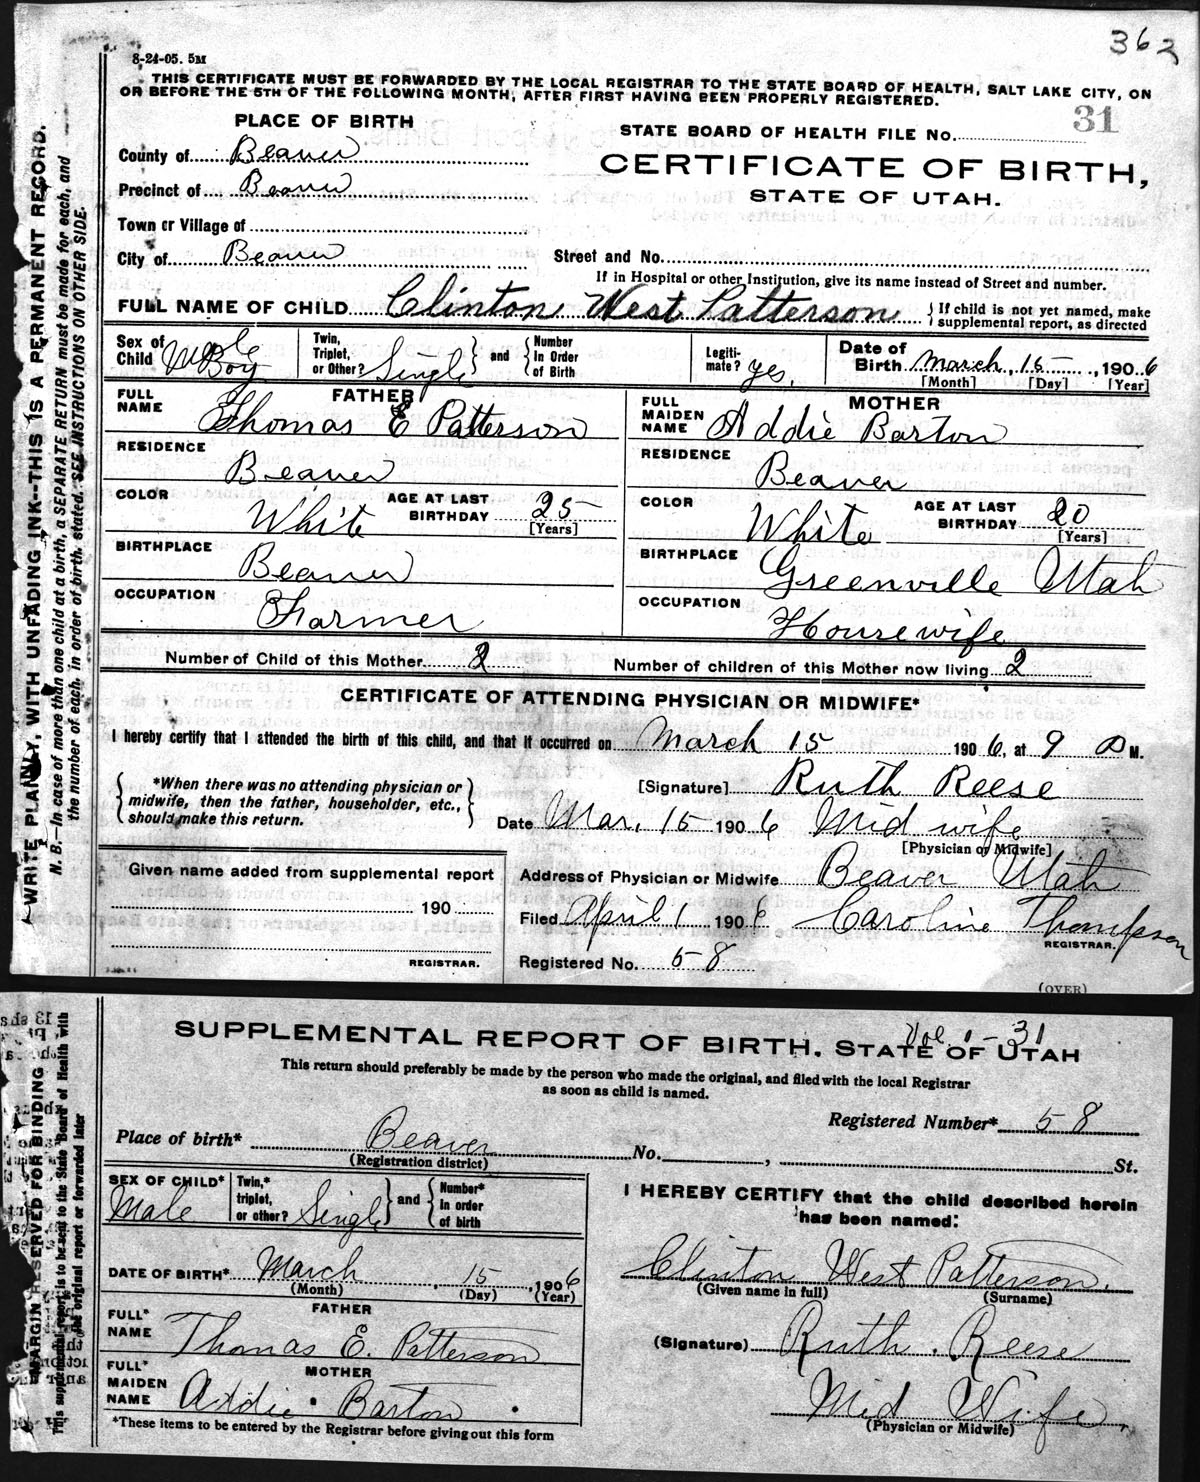 362
8-24-05. 5M
THIS CERTIFICATE MUST BE FORWARDED BY THE LOCAL REGISTRAR TO THE STATE BOARD OF HEALTH, SALT LAKE CITY, ON
OR BEFORE THE 5TH OF THE FOLLOWING MONTH, AFTER FIRST HAVING BEEN PROPERLY REGISTERED.
PLACE OF BIRTH
STATE BOARD OF HEALTH FILE No. 31
County of Beaver
CERTIFICATE OF BIRTH,
Precinct of Beaver
STATE OF UTAH.
Town or Village of
City of Beaver
Street and No.
If in Hospital or other Institution, give its name instead of Street and number.
FULL NAME OF CHILD Clinton West Patterson { If child is not yet named, make supplemental report, as directed
Sex of Child Male Boy
Twin, Triplet, or Other? Single } and { Number In Order of Birth
Legiti-mate? yes.
Date of Birth March, 15, 1906
[Month] [Day] [Year]
FATHER
FULL NAME Thomas E Patterson
RESIDENCE Beaver
COLOR White AGE AT LAST BIRTHDAY 25 [Years]
BIRTHPLACE Beaver
OCCUPATION Farmer
MOTHER
FULL MAIDEN NAME Addie Barton
RESIDENCE Beaver
COLOR White AGE AT LAST BIRTHDAY 20 [Years]
BIRTHPLACE Greenville Utah
OCCUPATION Housewife
Number of Child of this Mother 2 Number of children of this Mother now living 2
CERTIFICATE OF ATTENDING PHYSICIAN OR MIDWIFE*
I hereby certify that I attended the birth of this child, and that it occurred on March 15 1906, at 9 M.
{ *When there was no attending physician or
midwife, then the father, householder, etc.,
should make this return. }
[Signature] Ruth Reese
Date Mar, 15 1906 Mid wife
[Physician or Midwife]
Given name added from supplemental report
190
REGISTRAR.
Address of Physician or Midwife Beaver Utah
Filed April 1 1906 Caroline Thompson
REGISTRAR.
Registered No. 58
(OVER)
WRITE PLAINLY, WITH UNFADING INK--THIS IS A PERMANENT RECORD.
N. B.—In case of more than one child at a birth, a SEPARATE RETURN must be made for each, and
the number of each, in order of birth, stated. SEE INSTRUCTIONS ON OTHER SIDE.
Vol. 1-31
SUPPLEMENTAL REPORT OF BIRTH. STATE OF UTAH
This return should preferably be made by the person who made the original, and filed with the local Registrar
as soon as child is named.
Registered Number* 58
Place of birth* Beaver No. , St.
(Registration district)
SEX OF CHILD* Male
Twin,* triplet, or other? Single } and { Number* in order of birth
DATE OF BIRTH* March, 15, 1906
(Month) (Day) (Year)
FATHER
FULL* NAME Thomas E. Patterson
MOTHER
FULL* MAIDEN NAME Addie Barton
*These items to be entered by the Registrar before giving out this form
I HEREBY CERTIFY that the child described herein
has been named:
Clinton West Patterson.
(Given name in full) (Surname)
(Signature) Ruth Reese
Mid Wife,
(Physician or Midwife)
MARGIN RESERVED FOR BINDING
This supplemental report is to be sent to the State Board of Health with
the original report or forwarded later